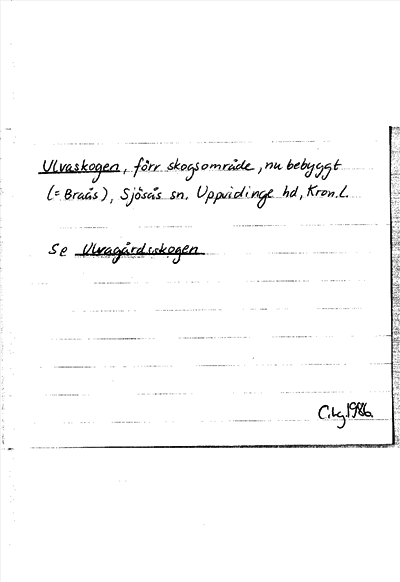 Ulvaskogen, förr skogsområde, nu bebyggt
(= Braås), Sjösås sn. Uppvidinge hd, Kron.l.
Se Ulvagårdsskogen
1986